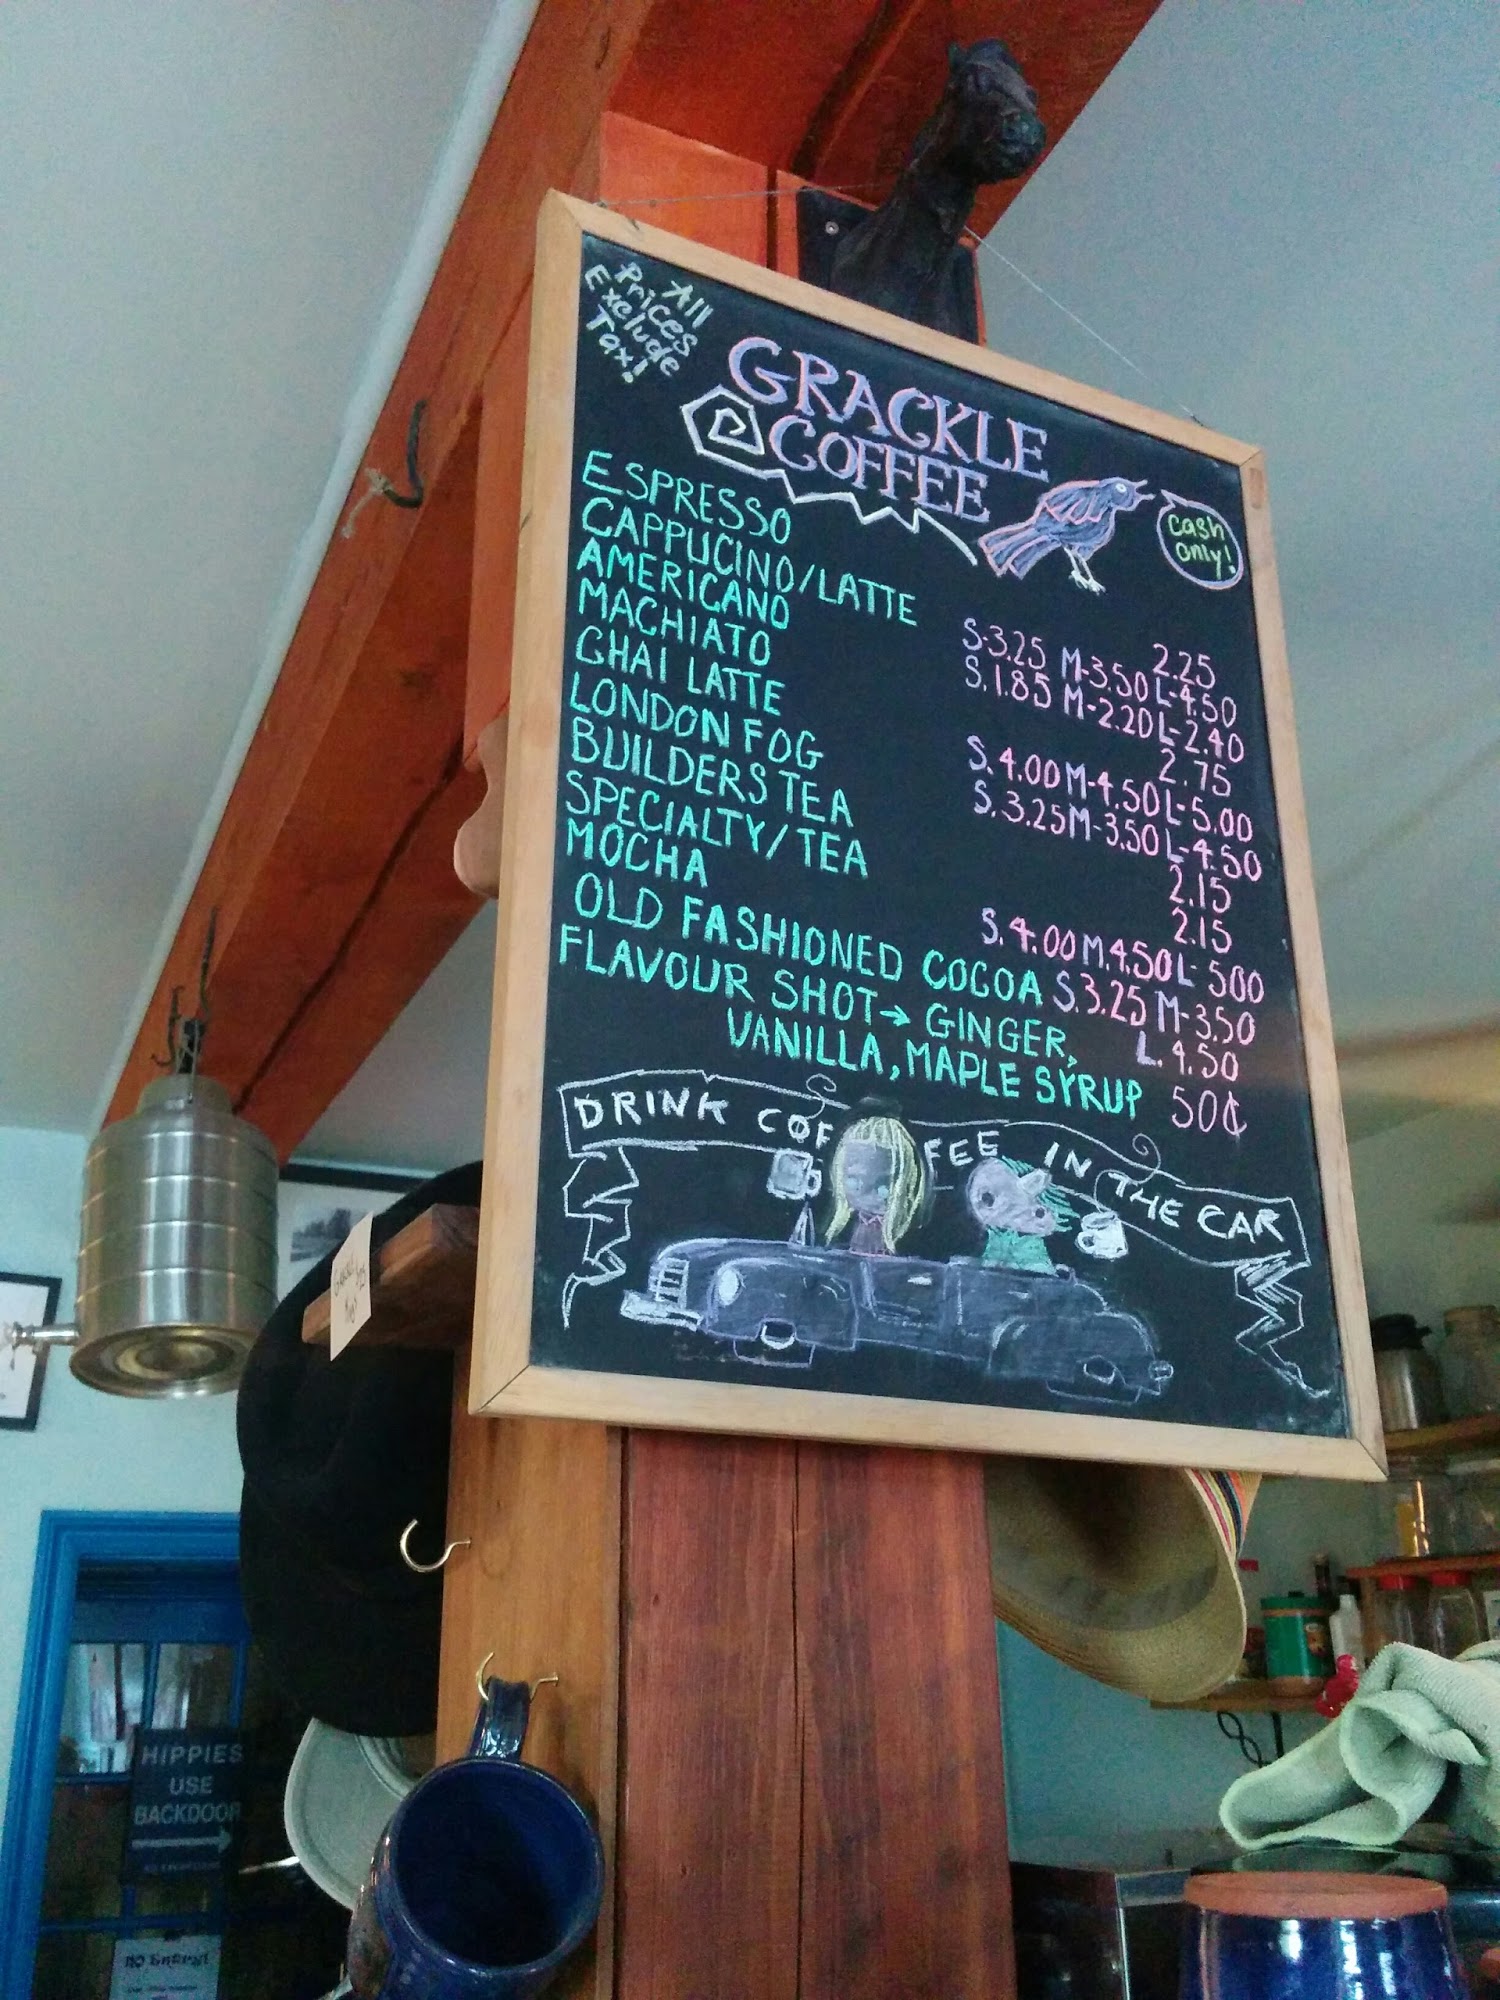 All
Prices
Exclude
Tax!
GRACKLE
COFFEE
cash
only!
ESPRESSO 2.25
CAPPUCINO/LATTE S-3.25 M-3.50 L-4.50
AMERICANO S.1.85 M-2.20 L-2.40
MACHIATO 2.75
CHAI LATTE S.4.00 M-4.50 L-5.00
LONDON FOG S.3.25 M-3.50 L-4.50
BUILDERS TEA 2.15
SPECIALTY/TEA 2.15
MOCHA S.4.00 M.4.50 L-500
OLD FASHIONED COCOA S.3.25 M-3.50
L.4.50
FLAVOUR SHOT→ GINGER,
VANILLA, MAPLE SYRUP 50¢
DRINK COFFEE IN THE CAR
HIPPIES
USE
BACKDOOR